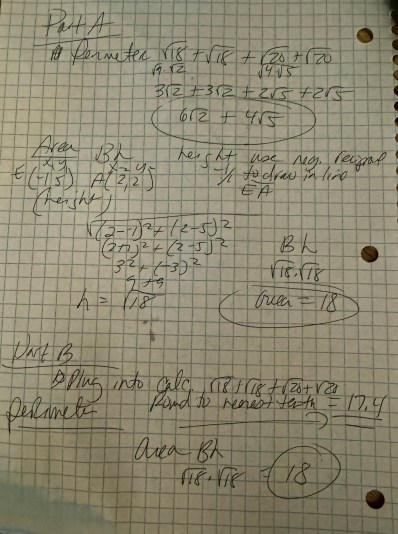 Part A
Perimeter √18 + √18 + √20 + √20
√9·√2 √4√5
3√2 + 3√2 + 2√5 + 2√5
6√2 + 4√5
Area Bh height use neg. recipral
x y x y -1/1 to draw in line
E(-1,5) A(2,2) EA
(height)
√(2--1)² + (2-5)²
(2+1)² + (2-5)² Bh
3² + (-3)² √18·√18
9 + 9
h = √18 area = 18
Part B
Plug into calc √18+√18+√20+√20
perimeter Round to nearest tenth = 17.4
Area Bh
√18·√18 = 18